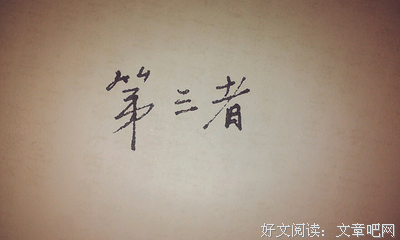 第三者
好文阅读：文章吧网